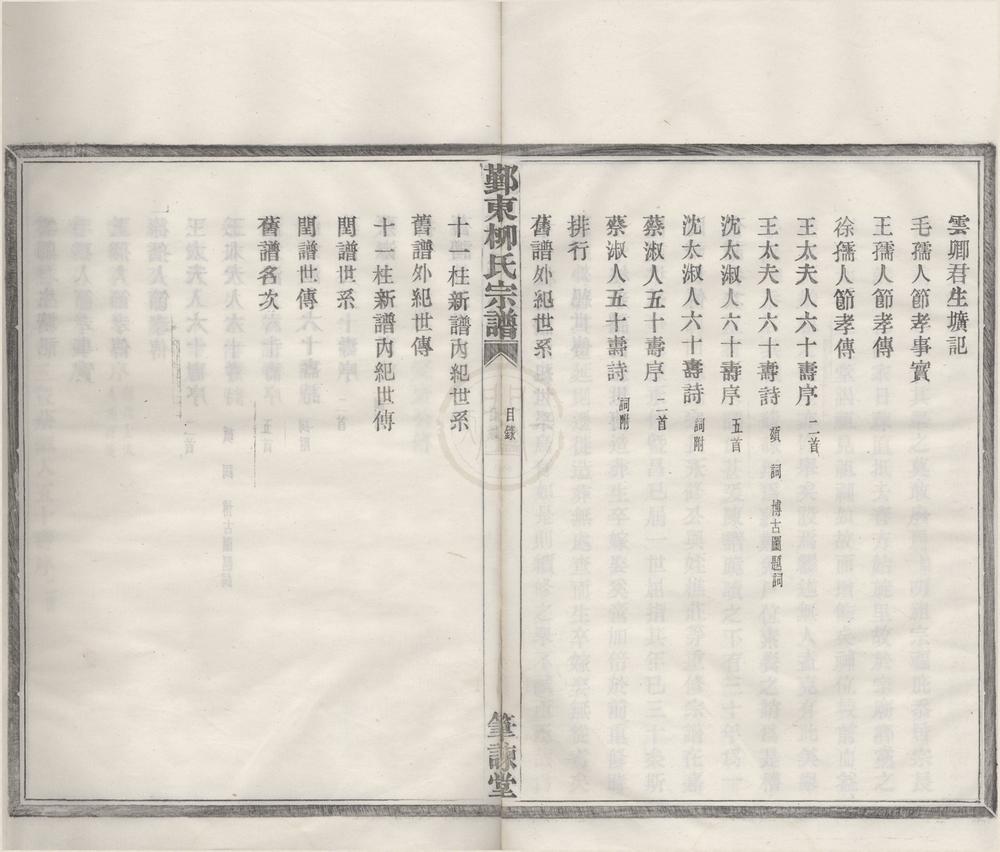 雲卿君生壙記
毛孺人節孝事實
王孺人節孝傳
徐孺人節孝傳
王太夫人六十壽序 二首
王太夫人六十壽詩 頌 詞 博古圖題詞
沈太淑人六十壽序 五首
沈太淑人六十壽詩 詞附
蔡淑人五十壽序 二首
蔡淑人五十壽詩 詞附
排行
舊譜外紀世系
鄞東柳氏宗譜 目錄 筆諫堂
十一柱新譜內紀世系
舊譜外紀世傳
十一柱新譜內紀世傳
閏譜世系
閏譜世傳
舊譜名次